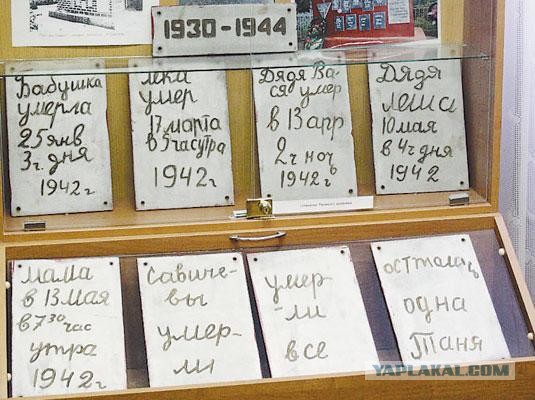 1930-1944
Бабушка
умерла
25 янв
3 ч. дня
1942 г
лека
умер
17 марта
в 5 часутра
1942 г
Дядя Ва-
ся умер
в 13 апр
2 ч ноч
1942 г
Дядя
леша
10 мая
в 4 ч дня
1942
мама
в 13 мая
в 7 30 час
утра
1942 г
Савиче-
вы
умер-
ли
умер-
ли
все
осталась
одна
Таня
YAPLAKAL.COM